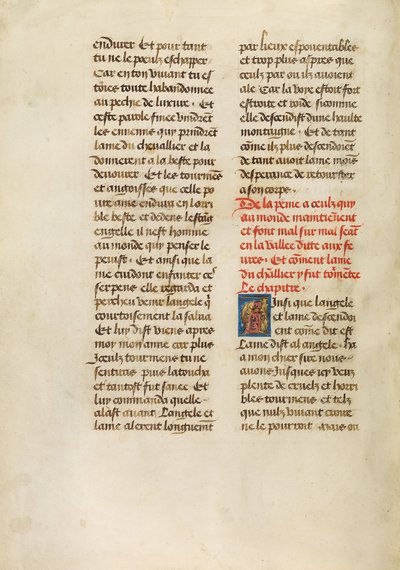 endurer Et pour tant
tu ne le pœulz eschapper
Car en ton viuant tu es
toies toute habandonnee
au pechie de luxure · Et
ceste parole finee vindrẽt
les ennemis quy prindrẽt
lame du chevallier et la
donnerent a la beste pour
deuourer · Et les tourmẽs
et angoisses que celle po
ure ame endura en lorri
ble beste et dedens lestãg
engelle il nest homme
au monde quy penser le
peuist · Et ainsi que la
me cuidoit enfanter ces
serpens elle regarda et
percheu venir langele q̃
courtoisement la salua
Et luy dist viens apres
moy mon amie car plus
Iceulz tourmens tu ne
sentiras puis latoucha
et tantost fut sanee Et
luy commanda quelle
alast auant Langele et
lame alerent longuemẽt
par lieux espouentables
et trop plus aspres que
ceulz par ou ilz auoient
ale Car la voye estoit fort
estroite et roide si comme
elle descendist dune haulte
montaigne · Et de tant
cõme ilz plus descendoiẽt
de tant auoit lame mois
desperance de retourner
a son corps ·
De la peine a ceulz quy
au monde maintiẽnent
et font mal sur mal scãt
en la vallee ditte aux fe
ures · Et cõment lame
du chl̃lier y fut tõmẽtee
Le chapitre ·
Ainsi que langele
et lame descendoi
ent cõme dit est
Lame dist al angele · ha
a mon chier sire nous
auons Jusques icy veuz
plente de cruelz et horri
bles tourmens et telz
que nulz viuant croire
ne le pourroit Mais ou